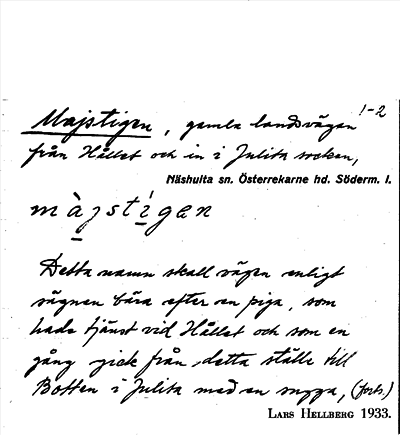 1-2
Majstigen, gamla landsvägen
från Hållet och in i Julita socken,
Näshulta sn. Österrekarne hd. Söderm. l.
mà̠jstí̠gan
Detta namn skall vägen enligt
sägnen bära efter en piga, som
hade tjänst vid Hållet och som en
gång gick från detta ställe till
Botten i Julita med en sugga, (forts.)
LARS HELLBERG 1933.